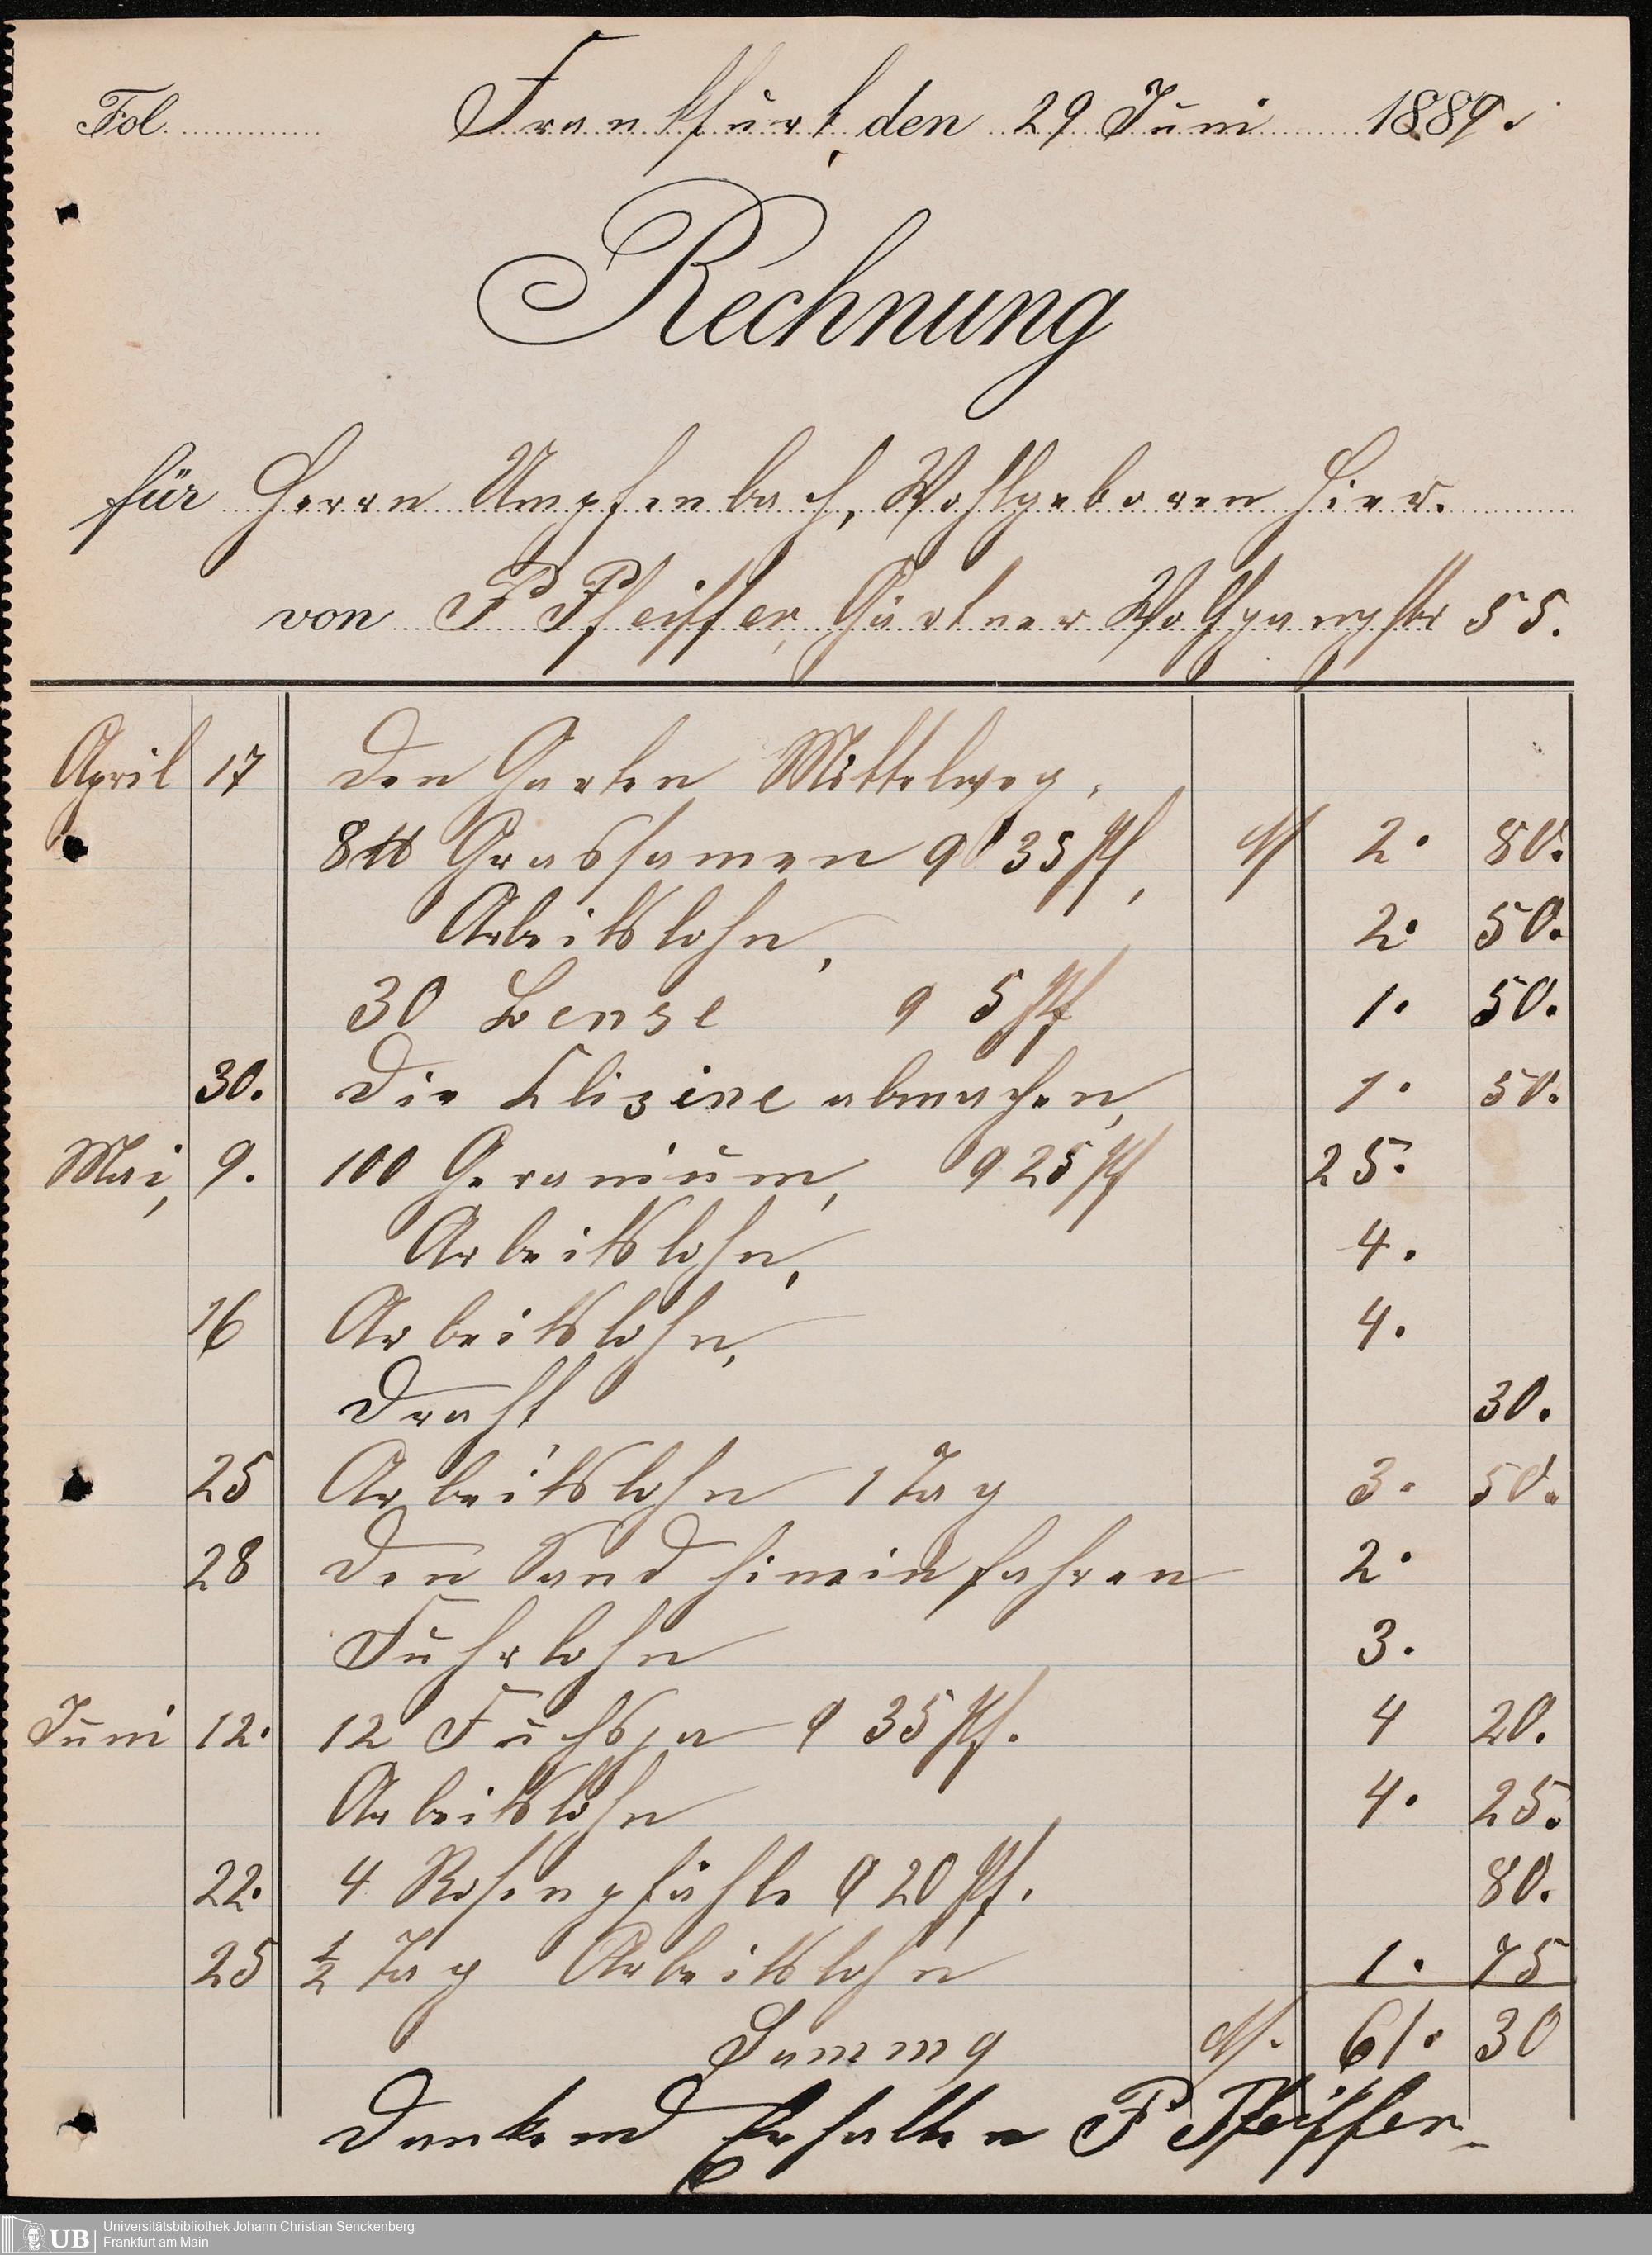 Fol. Frankfurt, den 29 Juni 1889.
Rechnung
für Herrn Umpfenbach, Wohlgeboren Hier.
von P Pfeiffer, Gärtner Wolfgangstr 55.
April 17 Den Garten Mittelweg,
8 ℔ Grassamen a 35 Pf, M 2. 80.
Arbeitslohn, 2. 50.
30 Bense a 5 Pf 1. 50.
30. Die Klizine abmachen, 1. 50.
Mai, 9. 100 Geranium, a 25 Pf 25.
Arbeitslohn, 4.
16 Arbeitslohn, 4.
Draht 30.
25 Arbeitslohn 1 Tag 3. 50.
28 Den Sand hineinfahren 2.
Fuhrlohn 3.
Juni 12. 12 Fuchsja a 35 Pf. 4 20.
Arbeitslohn 4. 25.
22. 4 Rosenpfähle a 20 Pf. 80.
25 ½ Tag Arbeitslohn 1. 75
Summa M. 61. 30
Dankend Erhalten P Pfeiffer
UB Universitätsbibliothek Johann Christian Senckenberg
Frankfurt am Main